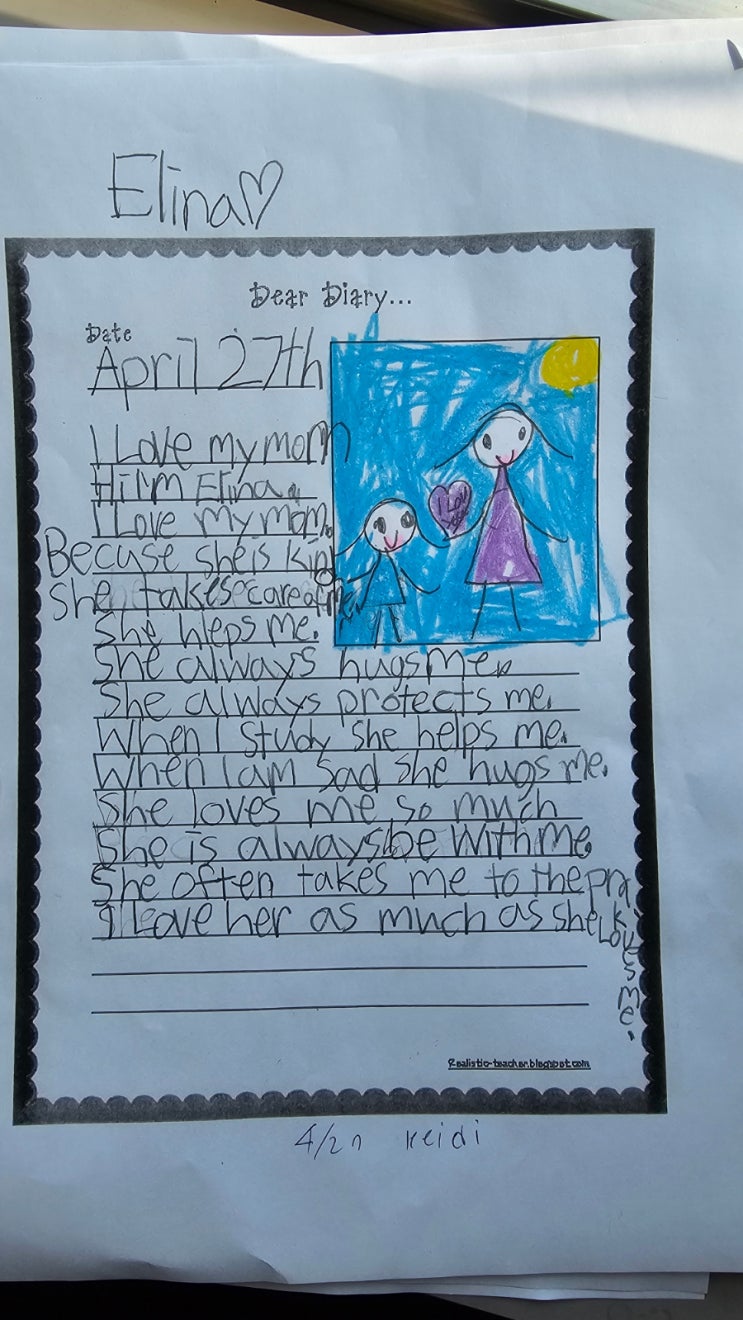 Elina♡
Dear Diary...
Date
April 27th
I Love my mom
Hi I'm Elina.
I Love my mom.
Becuse she is kind
She takes care of me.
She hleps me.
She always hugs me.
She always protects me.
When I study she helps me.
When I am sad she hugs me.
She loves me so much
She is always be with me
She often takes me to the park
I Love her as much as she Loves me.
I Love you
Realistic-teacher.blogspot.com
4/27 Keidi